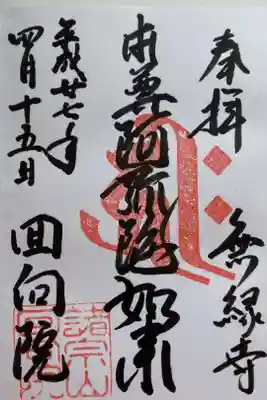 奉拝
無縁寺
本尊阿弥陀如来
平成廿七年
四月十五日
回向院
諸宗山